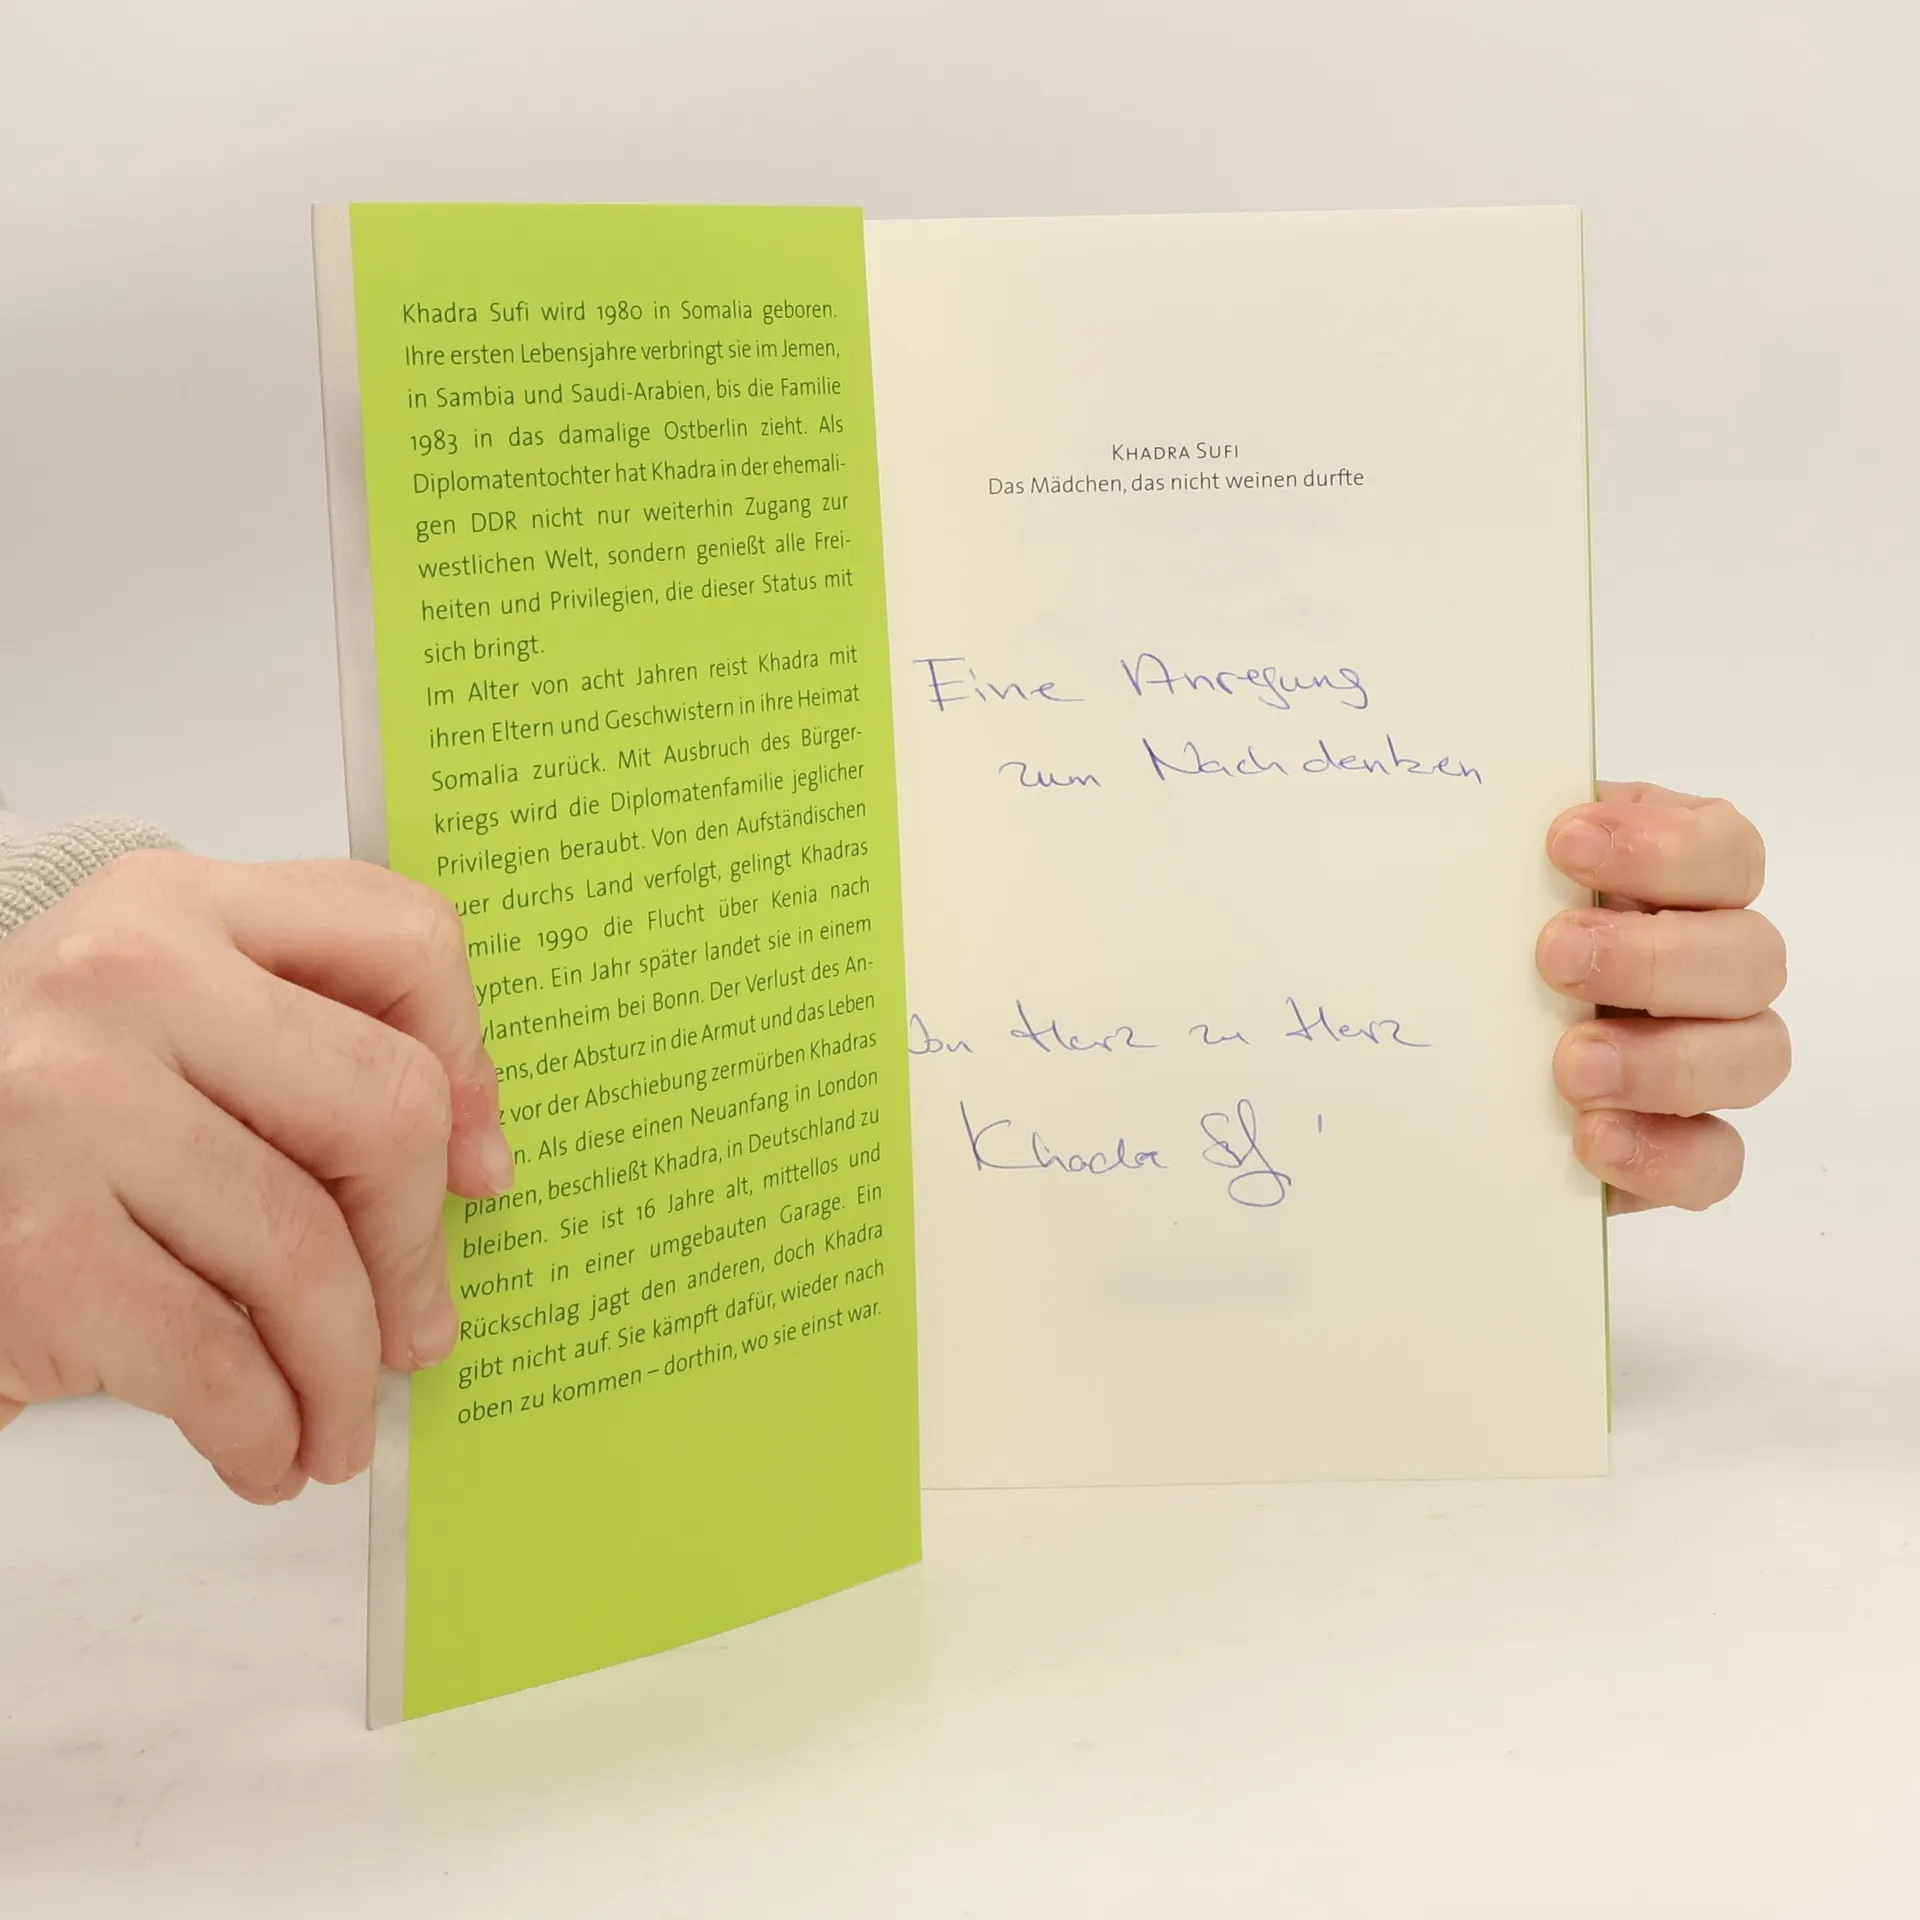 Khadra Sufi wird 1980 in Somalia geboren.
Ihre ersten Lebensjahre verbringt sie im Jemen,
in Sambia und Saudi-Arabien, bis die Familie
1983 in das damalige Ostberlin zieht. Als
Diplomatentochter hat Khadra in der ehemali-
gen DDR nicht nur weiterhin Zugang zur
westlichen Welt, sondern genießt alle Frei-
heiten und Privilegien, die dieser Status mit
sich bringt.
Im Alter von acht Jahren reist Khadra mit
ihren Eltern und Geschwistern in ihre Heimat
Somalia zurück. Mit Ausbruch des Bürger-
kriegs wird die Diplomatenfamilie jeglicher
Privilegien beraubt. Von den Aufständischen
uer durchs Land verfolgt, gelingt Khadras
milie 1990 die Flucht über Kenia nach
ypten. Ein Jahr später landet sie in einem
ylantenheim bei Bonn. Der Verlust des An-
ens, der Absturz in die Armut und das Leben
z vor der Abschiebung zermürben Khadras
n. Als diese einen Neuanfang in London
planen, beschließt Khadra, in Deutschland zu
bleiben. Sie ist 16 Jahre alt, mittellos und
wohnt in einer umgebauten Garage. Ein
Rückschlag jagt den anderen, doch Khadra
gibt nicht auf. Sie kämpft dafür, wieder nach
oben zu kommen – dorthin, wo sie einst war.
KHADRA SUFI
Das Mädchen, das nicht weinen durfte
Eine Anregung
zum Nachdenken
Von Herz zu Herz
Khadra Sufi